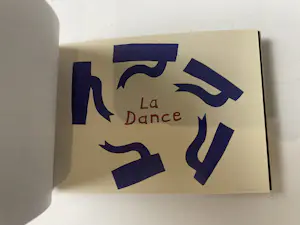 La
Dance